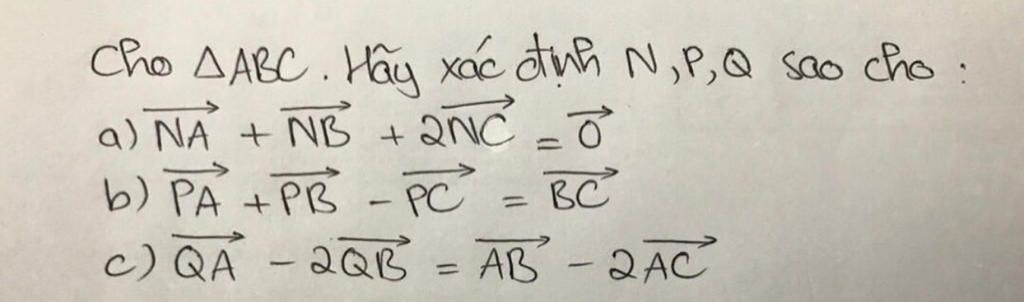 Cho ΔABC. Hãy xác định N,P,Q sao cho :
a) $\overrightarrow{NA}$ + $\overrightarrow{NB}$ + 2$\overrightarrow{NC}$ = $\overrightarrow{0}$
b) $\overrightarrow{PA}$ + $\overrightarrow{PB}$ - $\overrightarrow{PC}$ = $\overrightarrow{BC}$
c) $\overrightarrow{QA}$ - 2$\overrightarrow{QB}$ = $\overrightarrow{AB}$ - 2$\overrightarrow{AC}$